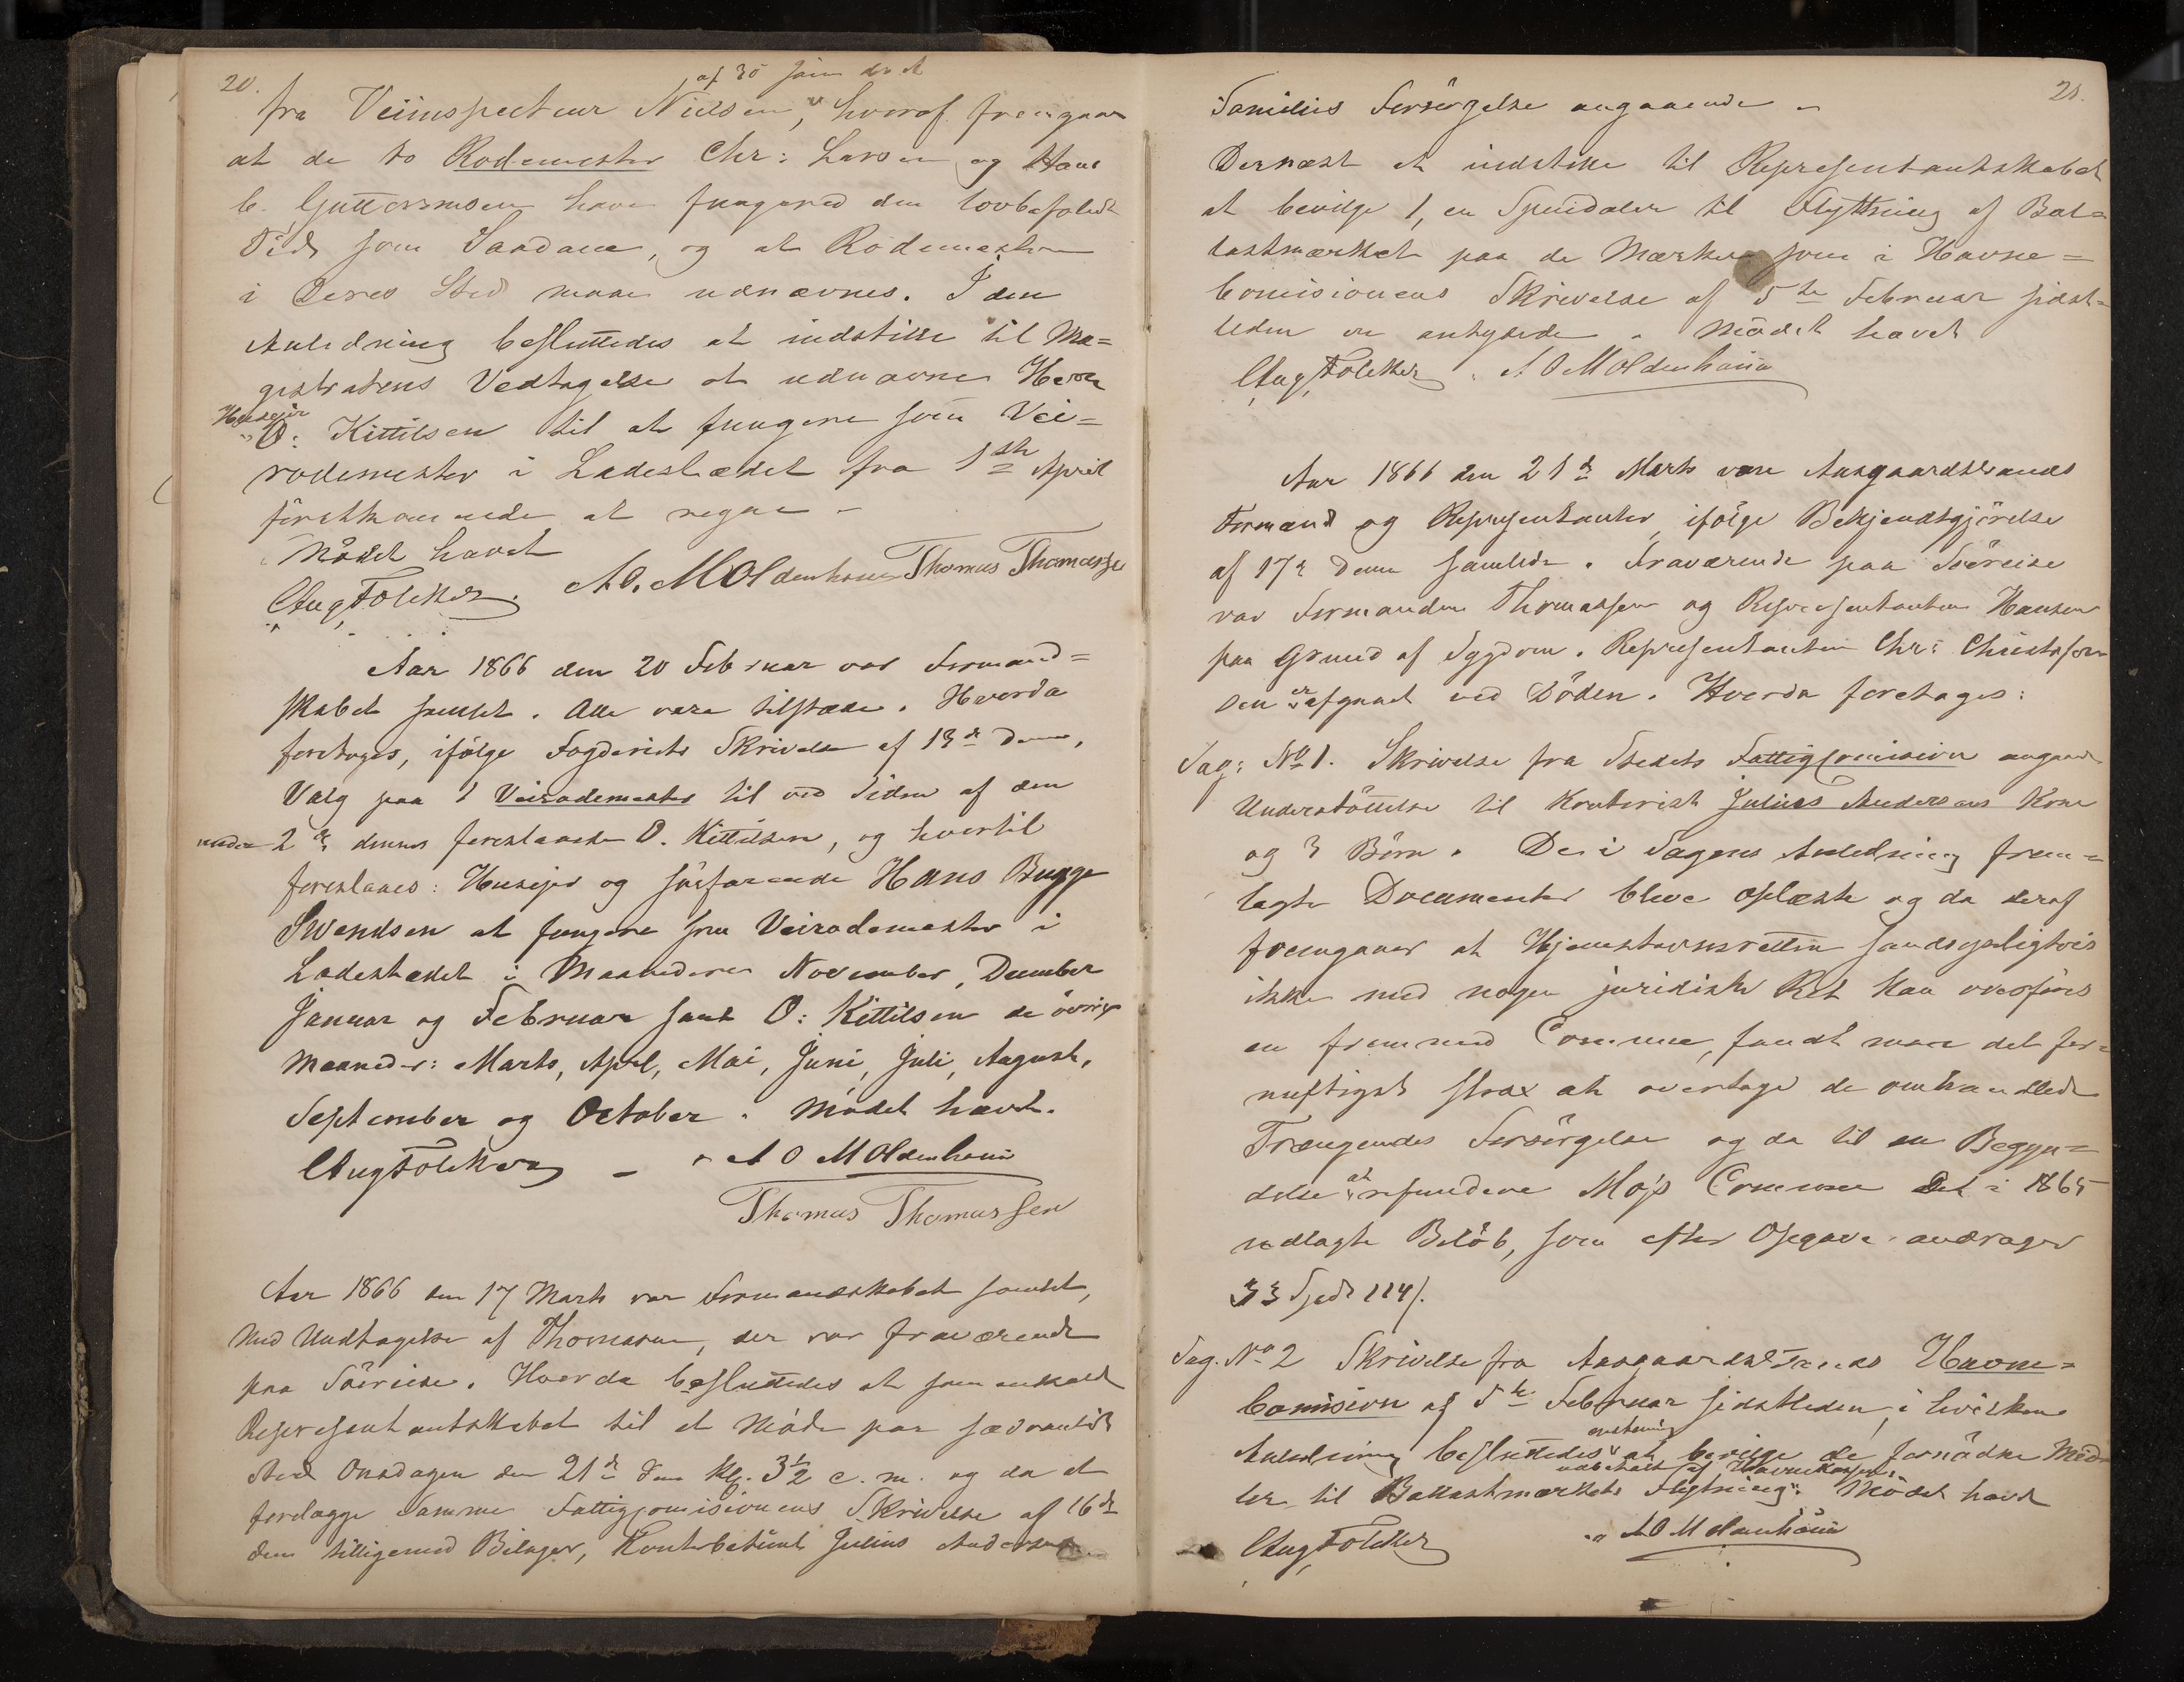 20.
fra Veiinspecteur Nielsen, hvoraf fremgaar
at de to Rodemester Chr: Larsen og Hans
Guttormsen have fungered den lovbefalede
Tid som Saadane, og at Rodemestere
i Deres Sted maa udnævnes. I den
Anledning besluttedes at indstille til Ma=
gistratens Vedtagelse at udnævne Herr
Huuseier
O: Kittilsen til at fungere som Vei=
rodemester i Ladestædet fra 1ste April
förstkommende at regne -
Mödet hævet
Aug Foleker. A. O. Moldenhauer Thomas Thomassen
Aar 1866 den 20 Februar var Formand=
skabet samlet. Alle vare tilstæde. Hvorda
foretoges, ifölge Fogderiets Skrivelse af 13de dennes,
Valg paa 1 Veirodemester til ved Siden af den
under 2de dennes foreslaaede O. Kittilsen, og hvortil
foreslaaes: Huuseier og söefarende Hans Bugge
Svendsen at fungere som Veirodemester i
Ladestædet i Maanederne November, December
Januar og Februar samt O: Kittilsen de övrige
Maaneder: Marts, April, Mai, Juni, Juli, August,
September og October. Mödet hævet.
Aug Foleker - A O Moldenhauer
Thomas Thomassen
Aar 1866 den 17 Marts var Formandskabet samlet,
Med Undtagelse af Thomassen, der var fraværende
paa Söereise. Hvorda besluttedes at sammenkalde
Representantskabet til et Möde paa sædvanligt
Sted Onsdagen den 21de dennes Kl. 3½ e. m. og da at
forelægge samme Fattigcomisionens Skrivelse af 16de
dennes tilligemed Bilager, Kontorbetjent Julius Andersens
21.
Families Forsörgelse angaaende -
Dernæst at indstille til Representantskabet
at bevilge 1, en Speidaler til Flyttning af Bal=
lastmærket paa de Mærker som i Havne=
Comisionens Skrivelse af 5te Februar sidst=
leden er antydede. Mödet hævet
Aug Foleker. A O Moldenhauer
Aar 1866 den 21de Marts vare Aasgaardstrands
Formænd og Representanter ifölge Bekjendtgjörelse
af 17de dennes samlede. Fraværende paa Söereise
var Formanden Thomassen og Representanten Hansen
paa Grund af Sygdom. Representanten Chr: Christofer=
sen er afgaaet ved Döden. Hvorda foretoges:
Sag: No 1. Skrivelse fra Stedets Fattigcomision angaaende
Understöttelse til Kontorist Julius Andersens Kone
og 3 Börn. De i Sagens Anledning frem=
lagte Documenter bleve oplæste og da deraf
fremgaaer at Hjemstavnsretten sandsynligtvis
ikke med nogen juridiske Ret kan overföres
en fremmed Comune, fandt man det for=
nuftigst strax at overtage de omhandlede
Trængendes Forsörgelse og da til en Begyn=
delse at refundere Moss Comune det i 1865
udlagte Belöb, som efter Opgave andrager
33 Spd 114/.
Sag. No 2 Skrivelse fra Aasgaardstrands Havne=
Comision af 5te Februar sidstleden, i hvilken
Anledning besluttedes at bevilge de fornödne Mid=
ler til Ballastmærkets Flytning. Mödet hævet
udbetalt af Havnekassen.
Aug Foleker A O Moldenhauer